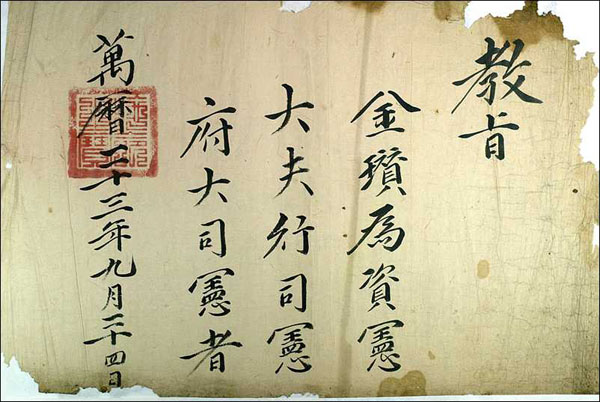 教旨
金瓚為資憲
大夫行司憲
府大司憲者
萬曆二十三年九月二十四日